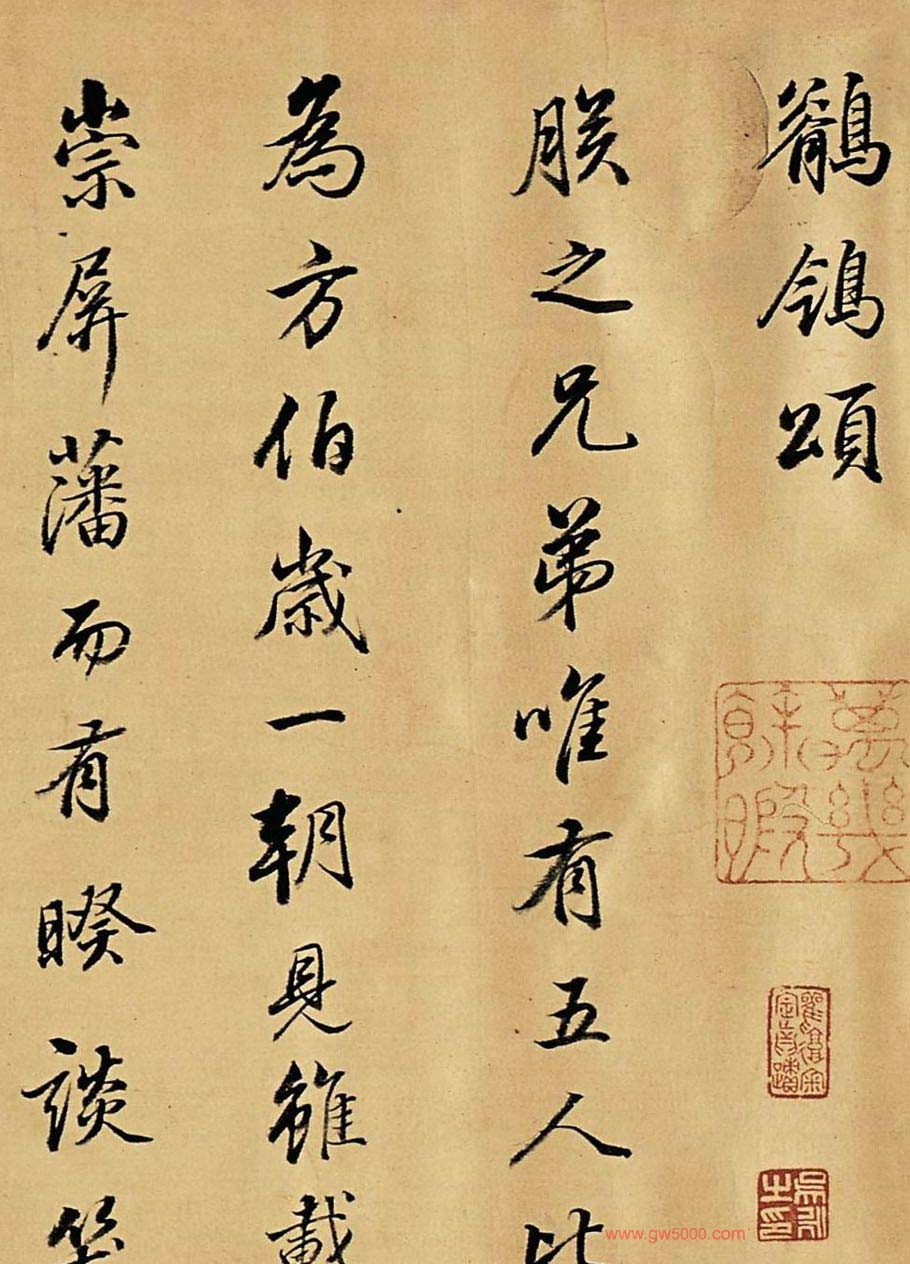 鶺鴒頌
朕之兄弟唯有五人比
為方伯歲一朝見雖載
崇屏藩而有睽談笑
萬幾餘暇
www.gw5000.com